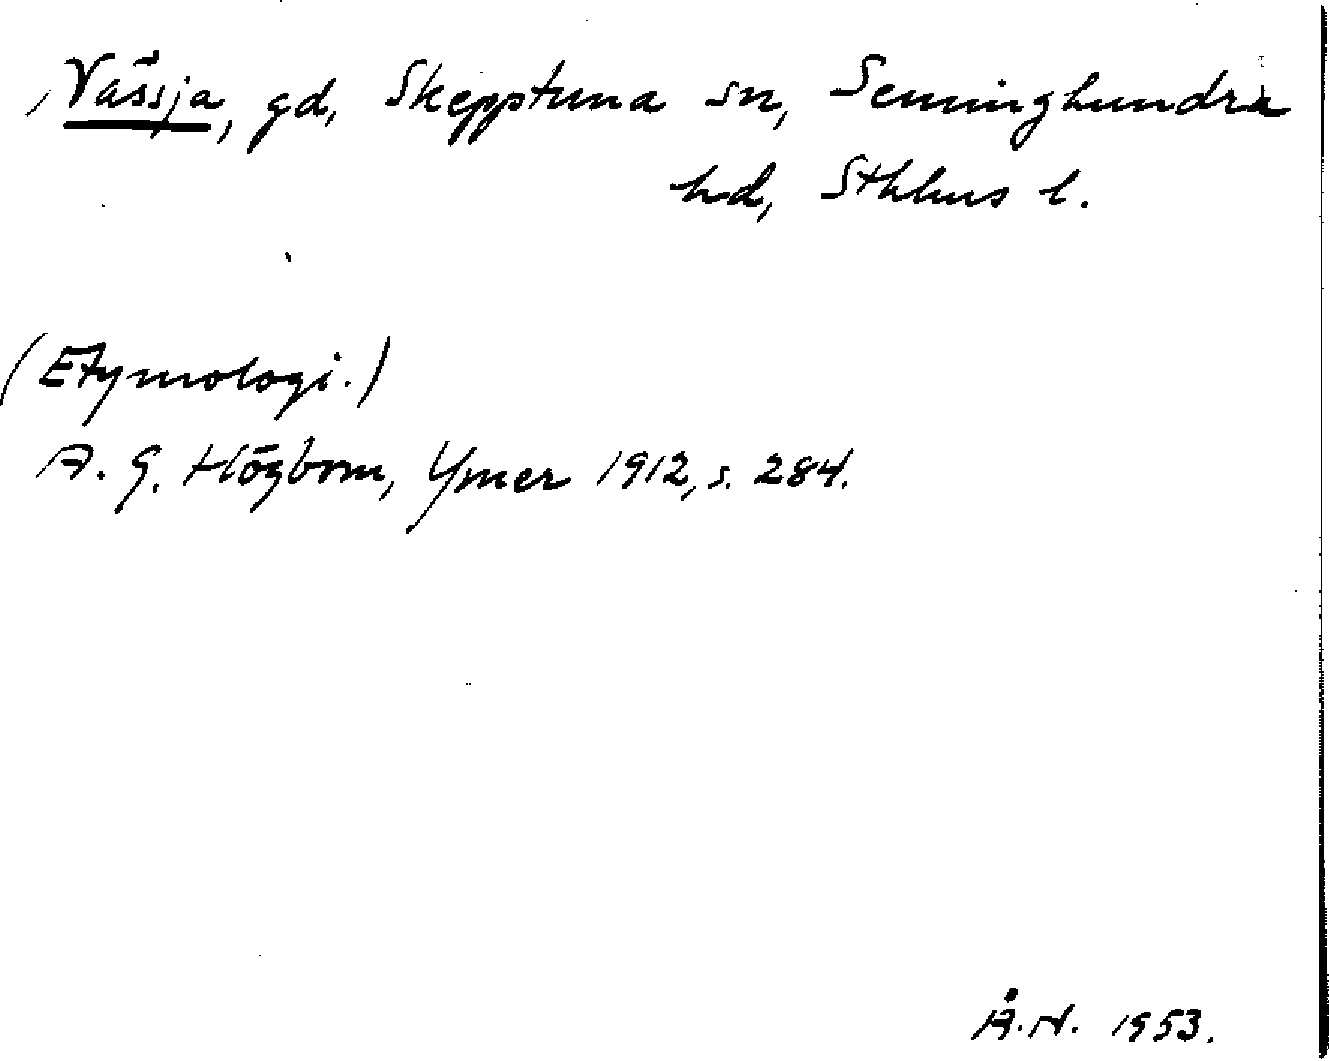 Vässja, gd, Skepptuna sn, Seminghundra
hd, Sthlms l.
(Etymologi.)
A. G. Högbom, Ymer 1912, s. 284.
Å.N. 1953.